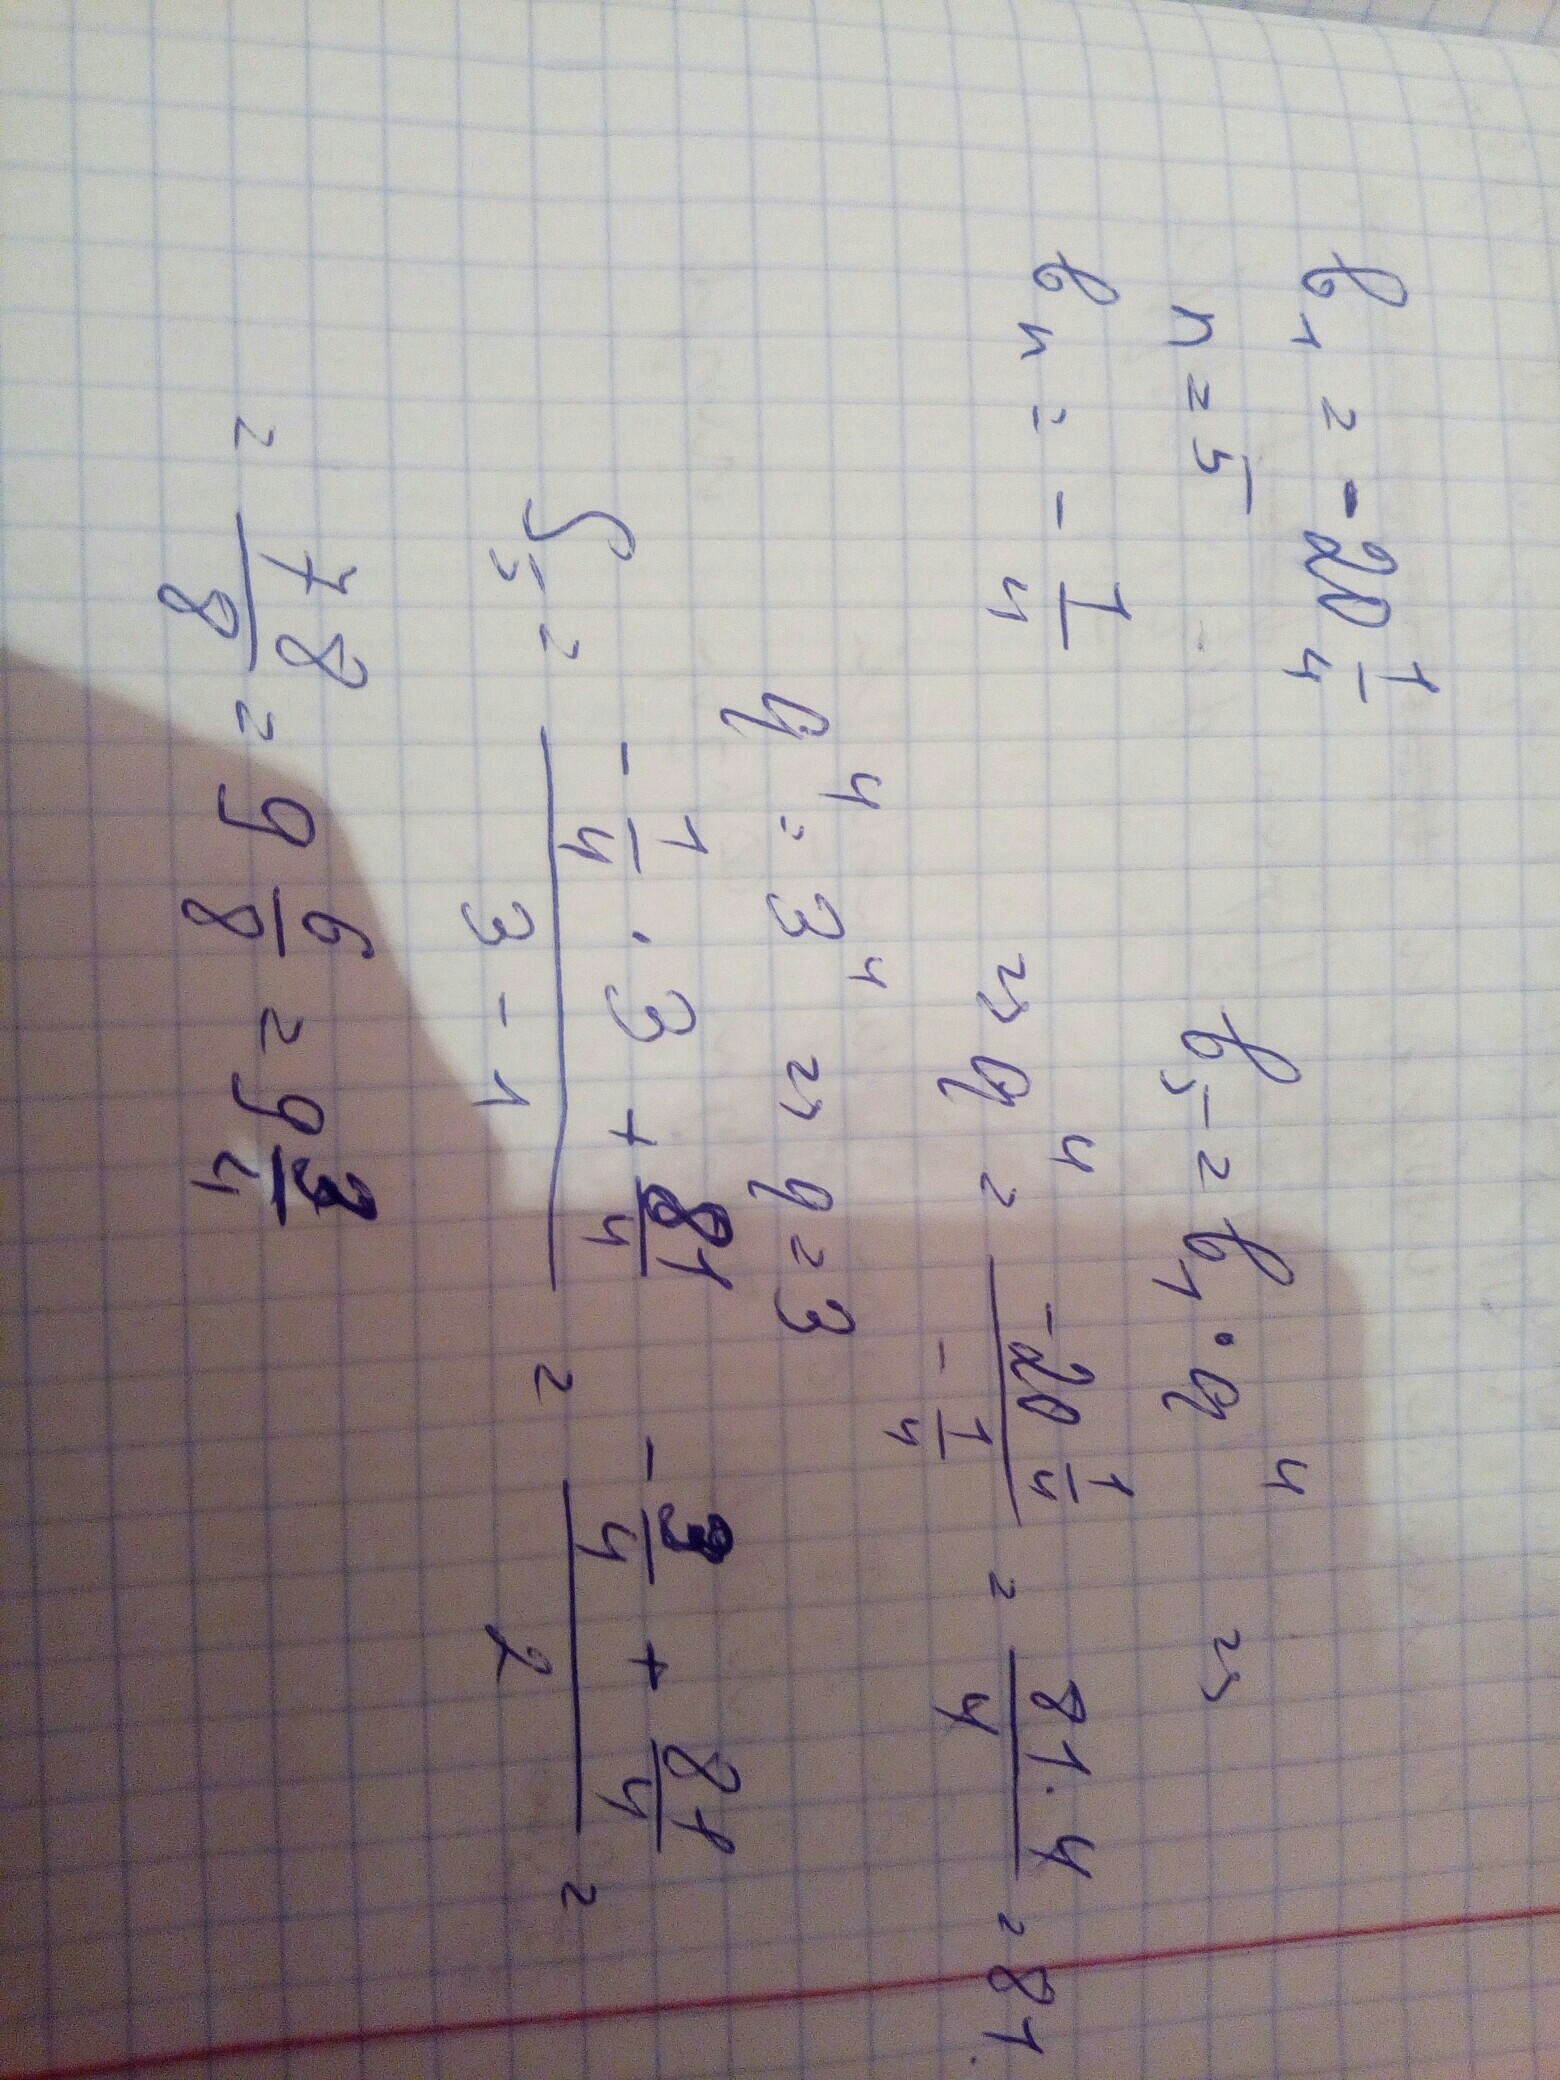 b₁ = -20 1/4
n = 5
bₙ = - 1/4
b₅ = b₁ · q⁴ =>
=> q⁴ = (-20 1/4)/(- 1/4) = (81·4)/4 = 81.
q⁴ = 3⁴ => q = 3
S₅ = (- 1/4 · 3 + 81/4)/(3 - 1) = (- 3/4 + 81/4)/2 =
= 78/8 = 9 6/8 = 9 3/4